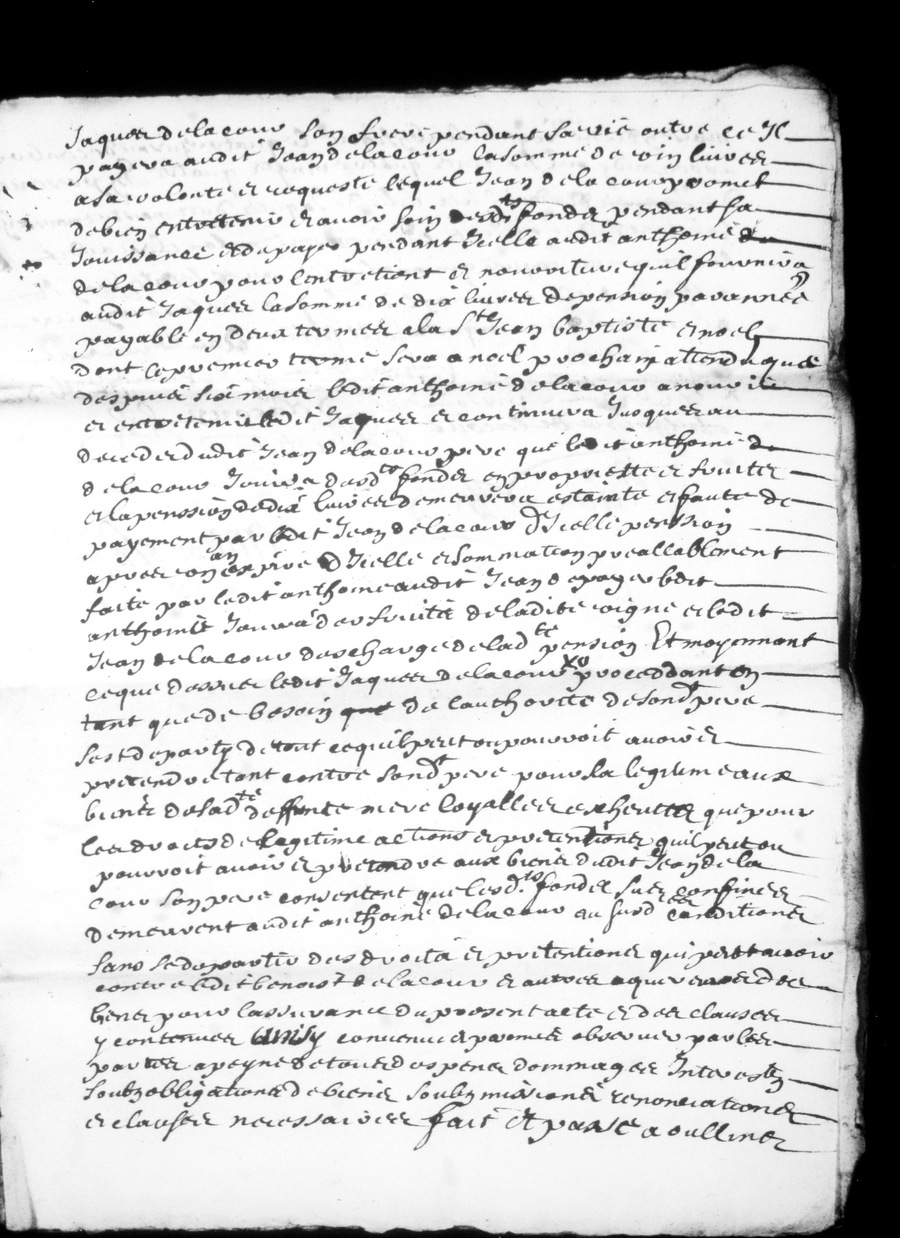 Jaques delacour son frere pendant sa vie outre ce Il
payera audit Jean delacour la somme de vin livres
a sa volonte et requeste lequel Jean dela cour promet
de bien entretenir et avoir soin desdts fondes pendant sa
Jouissance et de payer pendant Icelle audit anthoine
delacour pour lentretient et nourriture quil fournira
audit Jaques la somme de dix livres de pension par année
payable en deux termes a la Ste Jean baptiste et noel
dont le premier terme sera a noel prochain attendu que
despuis six mois ledit anthoine delacour a nourri
et entretenu ledit Jaques et continuera Jusques au
deced dudit Jean delacour pere que ledit anthoine
delacour Jouira desdts fondes en propriette et fruits
et la penssion de dix livres demeurera estainte et faute de
payement par ledit Jean delacour dIcelle penssion
apres un an expire dIcelle et sommation preallablement
faite par ledit anthoine audit Jean de payer ledit
anthoine Jouira des fruits de ladite vigne et ledit
Jean delacour descharge de ladte pension Et moyennant
ce que dessus ledit Jaques delacour procedant en
tant que de besoin de lauthorite de sondt pere
sest departy de tout ce quil peut ou pouvoit avoir et
pretendre tant contre sondt pere pour sa legitime aux
biens de sadte deffunte mere que pour
les droits de legitime actions et pretentions quil peut ou
pouvoit avoir et pretendre aux biens dudit Jean dela
cour son pere consentent que lesdts fondes sus confines
demeurent audit anthoine delacour au susdes conditions
sans se departir des droits et pretentions qui peut avoir
contre ledit benoist delacour et autres aquereurs des
biens pour lassurance du present acte et des clauses
y contenues ainsy convenu et promis observer par les
parties a peyne de tous despens dommages Interestz
soubz obligations de biens soubzmissions renonciations
et clauses necessaires fait et passe a oullins